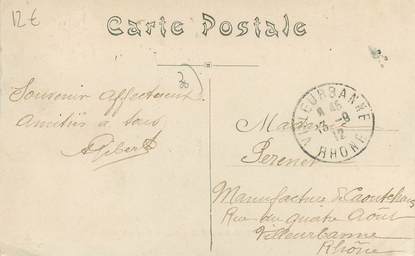 12€
Carte Postale
Souvenir affectueux
Amitiés à tous
AGibert
VILLEURBANNE
8 45
13 -8
12
RHONE
Perenet
Manufacture de Caoutchouc
Rue du quatre Août
Villeurbanne
Rhône